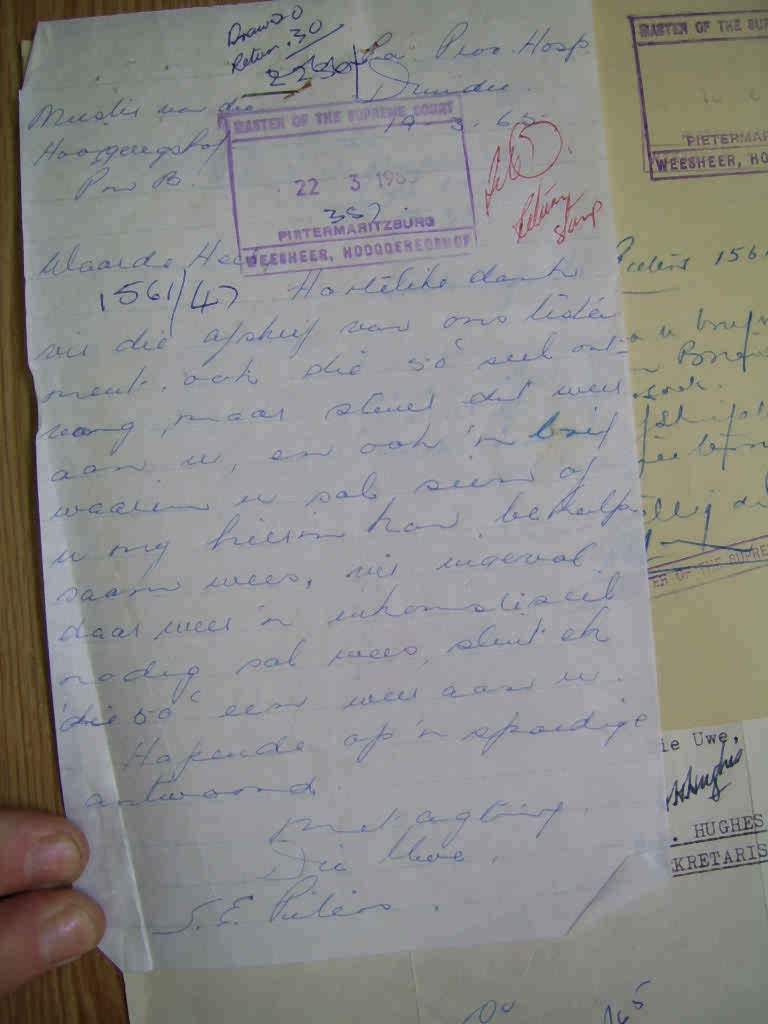 Draw 20
Return .30
p/a Prov. Hosp
Dundee.
19-3-65
Meester van die
Hooggeregshof
PMB.
MASTER OF THE SUPREME COURT
22 3 1965
PIETERMARITZBURG
WEESHEER, HOOGGEREGSHOF
Return
stamp
Waarde Heer,
1561/47 Hartelike dank
vir die afskrif van ons testa
ment, ook die 50c seël ont-
vang, maar stuur dit weer
aan u, en ook 'n brief
waarin u sal sien of
u my hierin kan behulp
saam wees, vir ingeval
daar weer 'n inkomsteseël
nodig sal wees, stuur ek
die 50c een weer aan u.
Hopende op 'n spoedige
antwoord.
met agting.
Die Uwe,
S. E. Pieters.
MASTER OF THE SUP
PIETERMA
WEESHEER, HO
Pieters 1561
u brief
ER OF THE SUPRE
ie Uwe,
Hughes
. HUGHES
KRETARIS